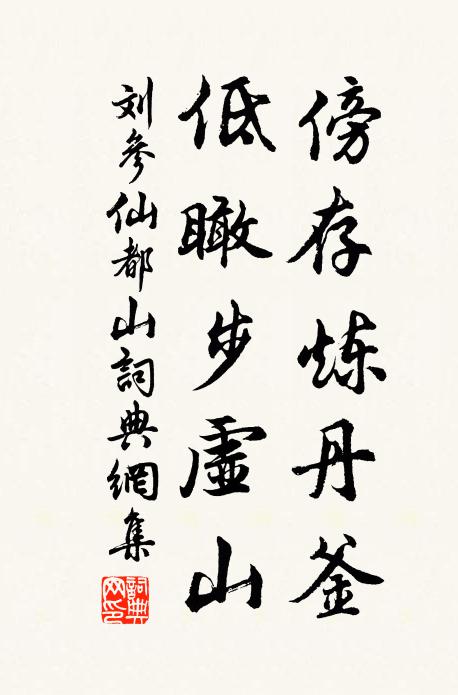 傍存炼丹釜
低瞰步虛山
刘參仙都山詞典網集
詞典
网印